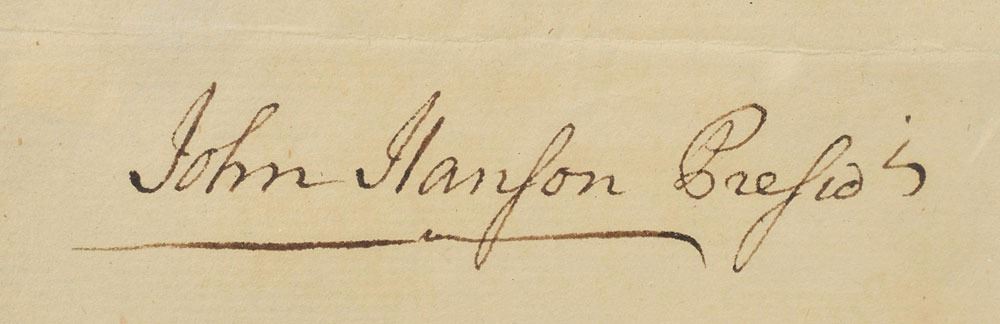 John Hanson Presidt